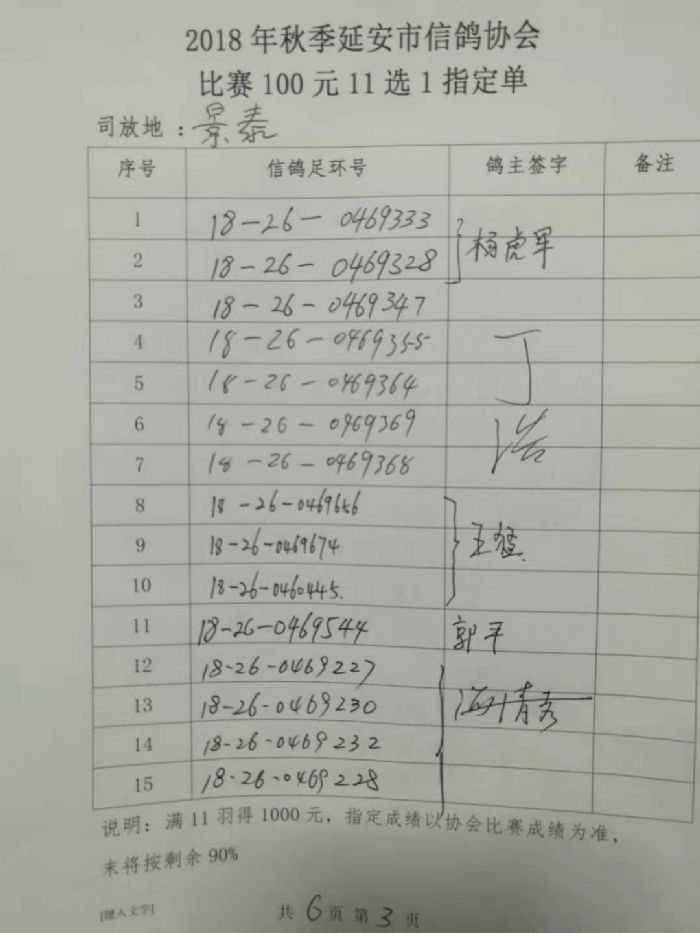 2018年秋季延安市信鸽协会
比赛100元11选1指定单
司放地：景泰
序号 信鸽足环号 鸽主签字 备注
1 18-26-0469333
2 18-26-0469328 杨虎军
3 18-26-0469347
4 18-26-0469355
5 18-26-0469364 丁
6 18-26-0469369
7 18-26-0469368 浩
8 18-26-0469656
9 18-26-0469674 王猛
10 18-26-0460445.
11 18-26-0469544 郭平
12 18-26-0469227
13 18-26-0469230
14 18-26-0469232
15 18-26-0469228
说明：满11羽得1000元，指定成绩以协会比赛成绩为准，
末将按剩余90%
[键入文字]
共6页第3页